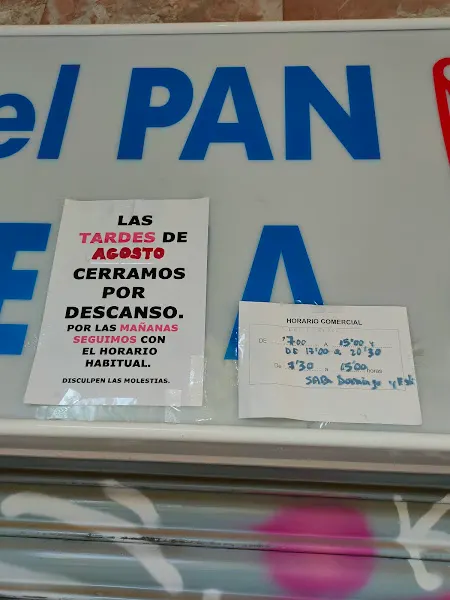 el PAN
LAS
TARDES DE
AGOSTO
CERRAMOS
POR
DESCANSO.
POR LAS MAÑANAS
SEGUIMOS CON
EL HORARIO
HABITUAL.
DISCULPEN LAS MOLESTIAS.
E A
HORARIO COMERCIAL
DE 7'00 a 15'00 y
DE 17'00 a 20'30
De 7'30 a 15'00 horas
SAB Domingo y